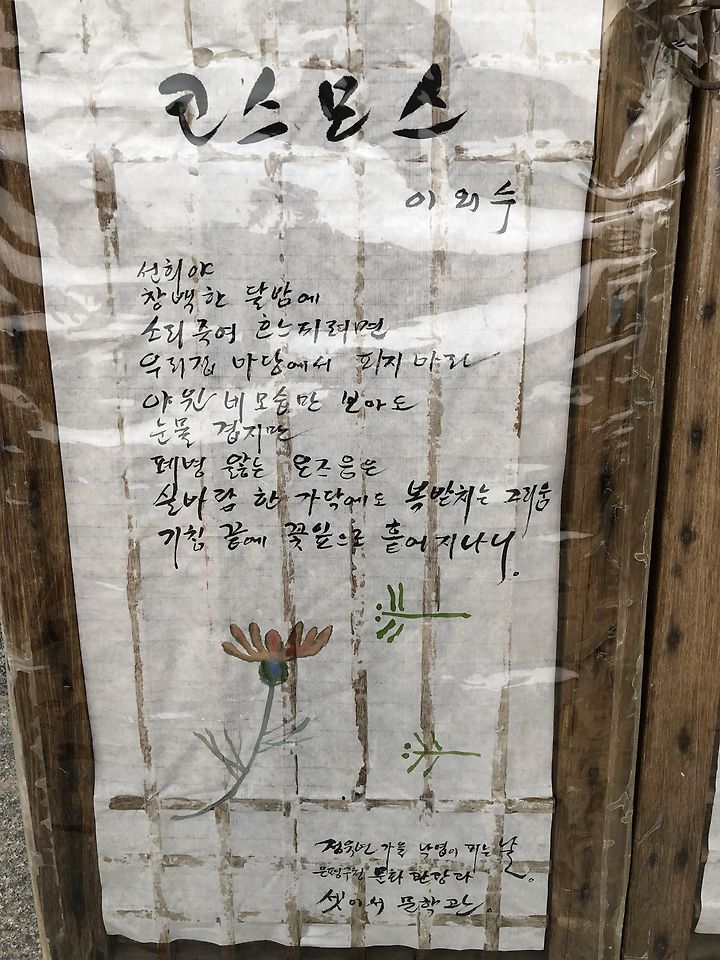 코스모스
이외수
선희야
창백한 달밤에
소리죽여 흐느끼려면
우리집 마당에서 피지 마라
야윈 네 모습만 보아도
눈물 겹지만
폐병 앓는 요즈음은
실바람 한 가닥에도 복받치는 그리움
기침 끝에 꽃잎으로 흩어지나니.
정유년 가을 낙엽이 피는 날.
은평구청 문화관광과
셋이서 문학관.